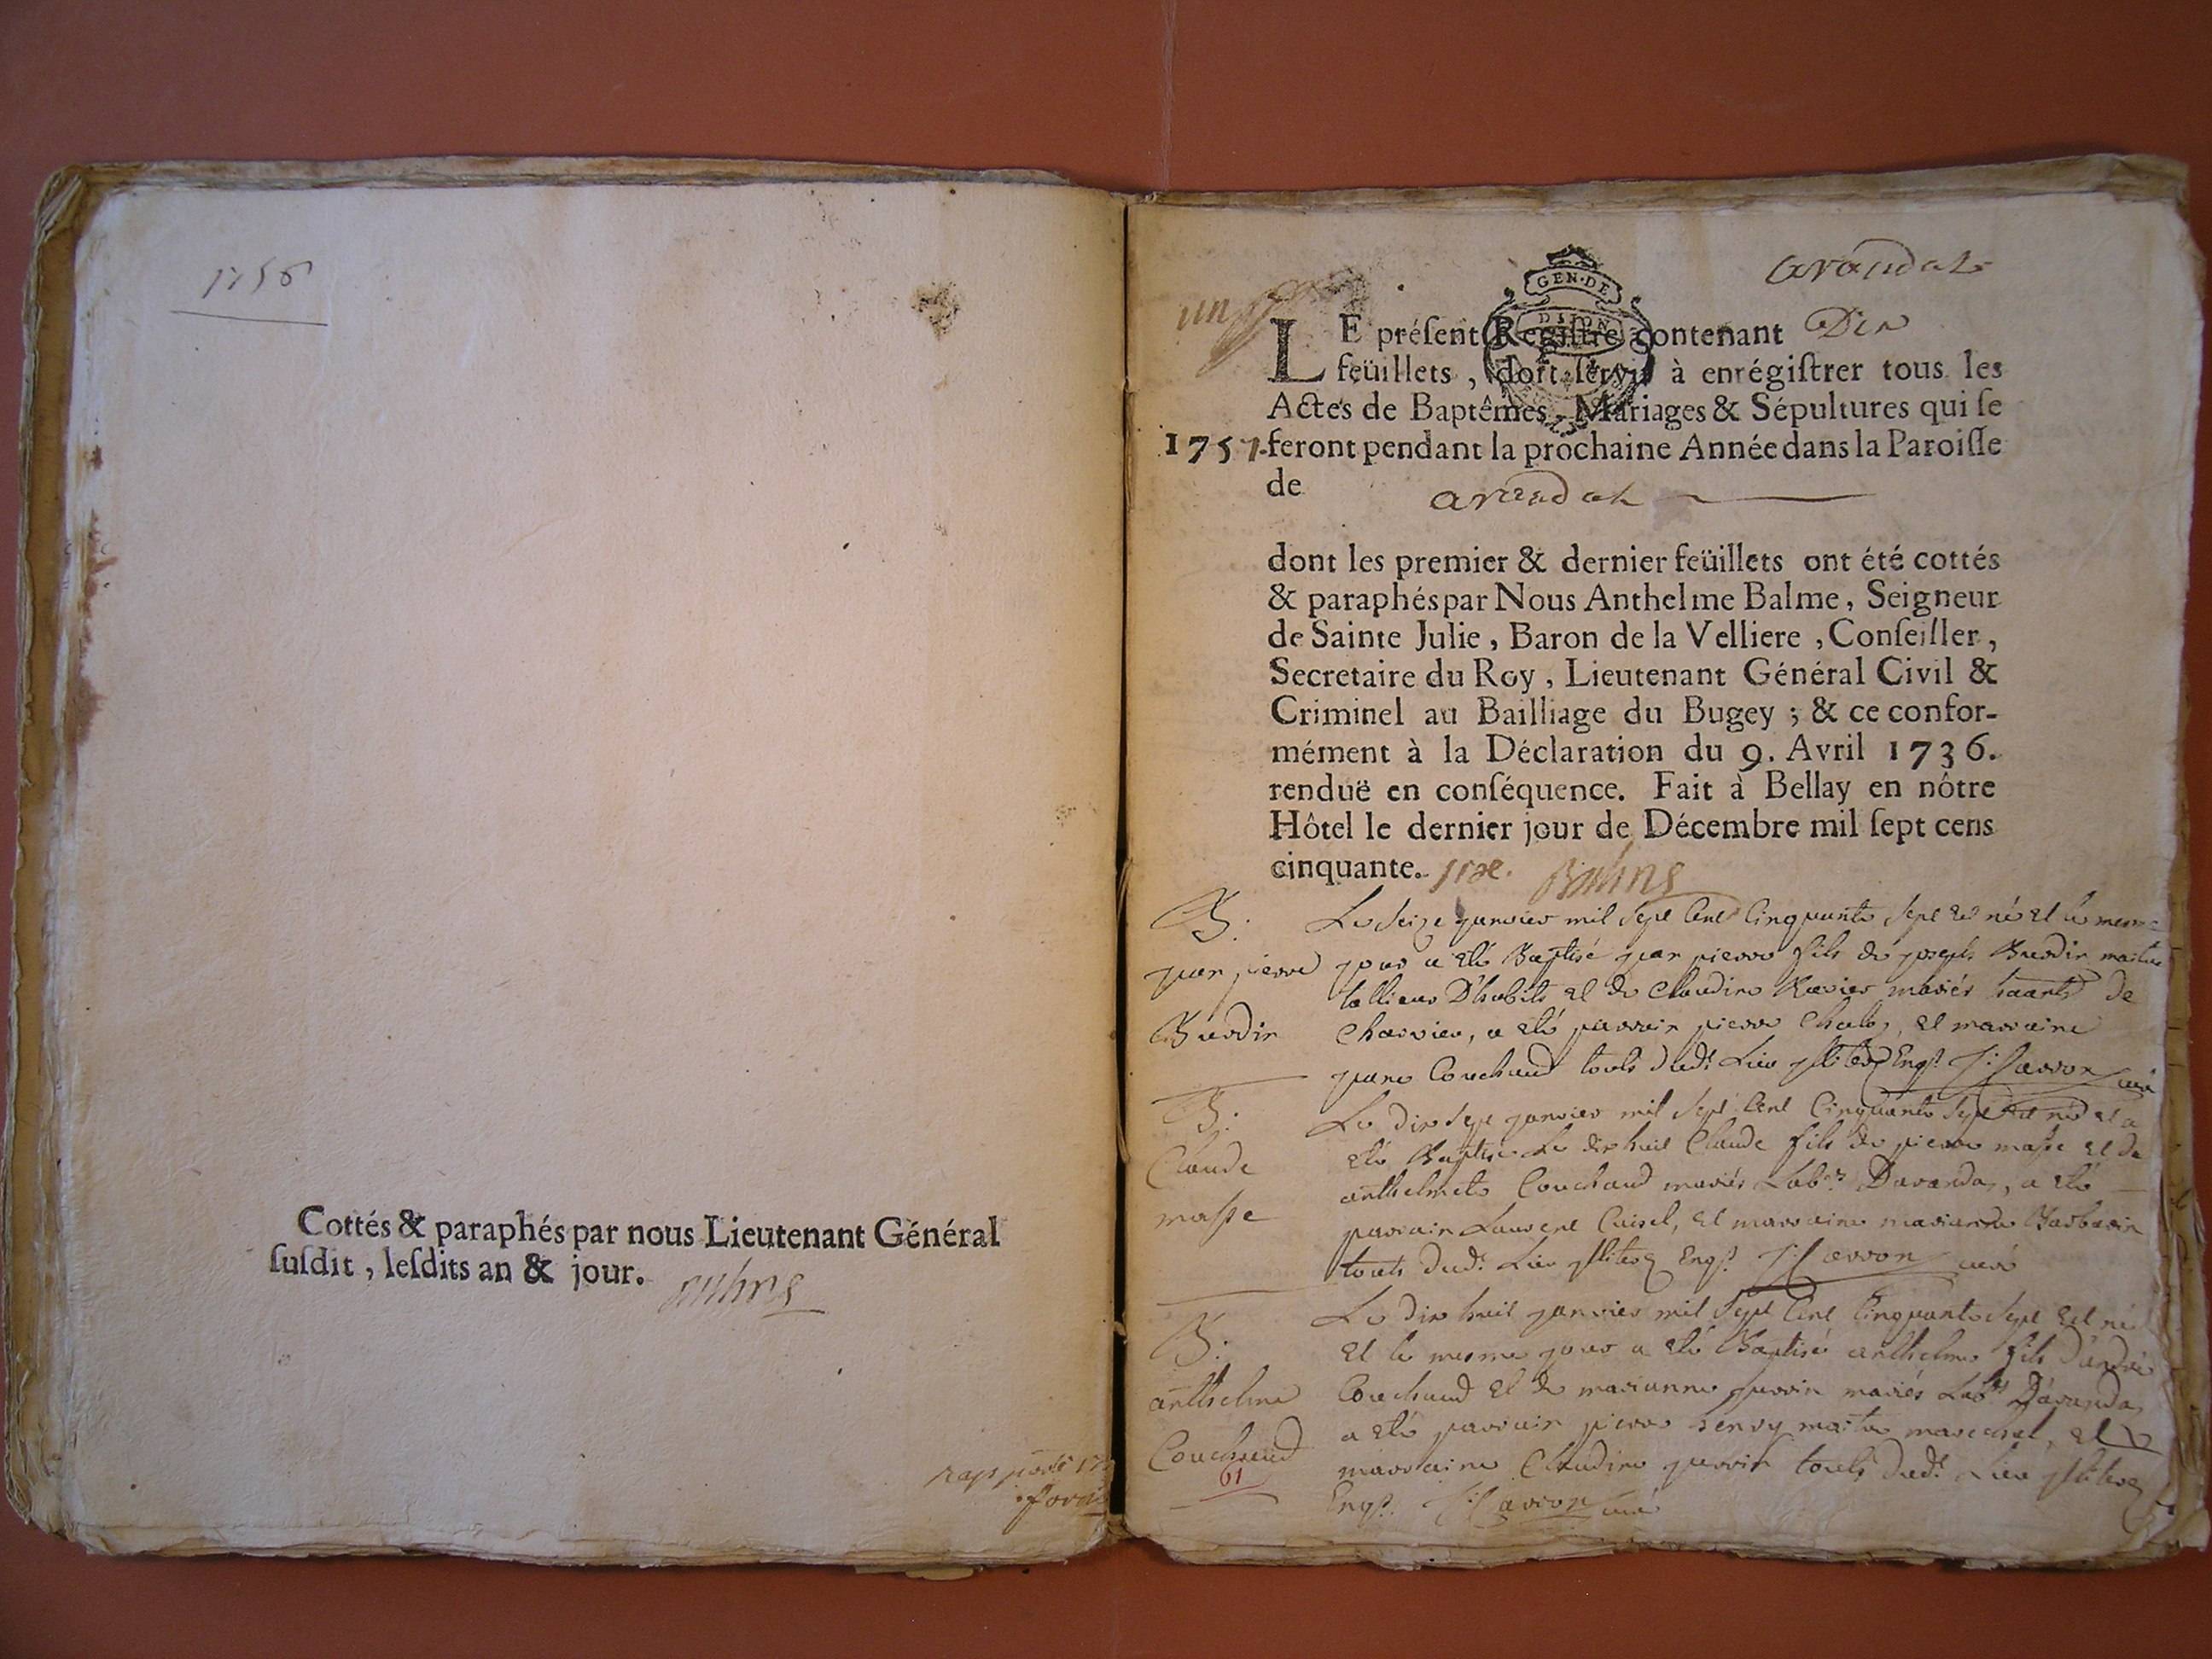 1756
Cottés & paraphés par nous Lieutenant Général
ſuſdit, leſdits an & jour.
Balme
GEN·DE
DIJON
arandas
un
LE préſent Regiſtre contenant Dix
feüillets, doit ſervir à enrégiſtrer tous les
Actes de Baptêmes, Mariages & Sépultures qui ſe
1757. feront pendant la prochaine Année dans la Paroiſſe
de arandas
dont les premier & dernier feüillets ont été cottés
& paraphés par Nous Anthelme Balme, Seigneur
de Sainte Julie, Baron de la Velliere, Conſeiller,
Secretaire du Roy, Lieutenant Général Civil &
Criminel au Bailliage du Bugey; & ce confor-
mément à la Déclaration du 9. Avril 1736.
renduë en conſéquence. Fait à Bellay en nôtre
Hôtel le dernier jour de Décembre mil ſept cens
cinquante. six. Balme
B.
jean pierre
Burdin
Le seize janvier mil sept cent cinquante sept est né et le mesme
jour a eté Baptisé jean pierre fils de joseph Burdin maitre
tallieur D'habits et de Claudine Ravier mariés de
Charvieu, a eté parrain pierre et marraine
jeanne Couchaud touts dud.t Lieu curé
B.
Claude
masse
Le dix sept janvier mil sept cent cinquante sept est né et a
eté Baptisé le dix huit Claude fils de pierre masse et de
anthelmete Couchaud mariés Lab.rs Darandas, a eté
parrain Laurent Cuisel, et marraine marianne Barbarin
touts dud.t Lieu curé
B.
anthelme
Couchaud
61
Le dix huit janvier mil sept cent cinquante sept est né
et le mesme jour a eté Baptisé anthelme fils d'andré
Couchaud et de marianne mariés Lab.rs D'arandas
a eté parrain pierre maitre marechal, et
marraine Claudine touts dud.t Lieu
curé